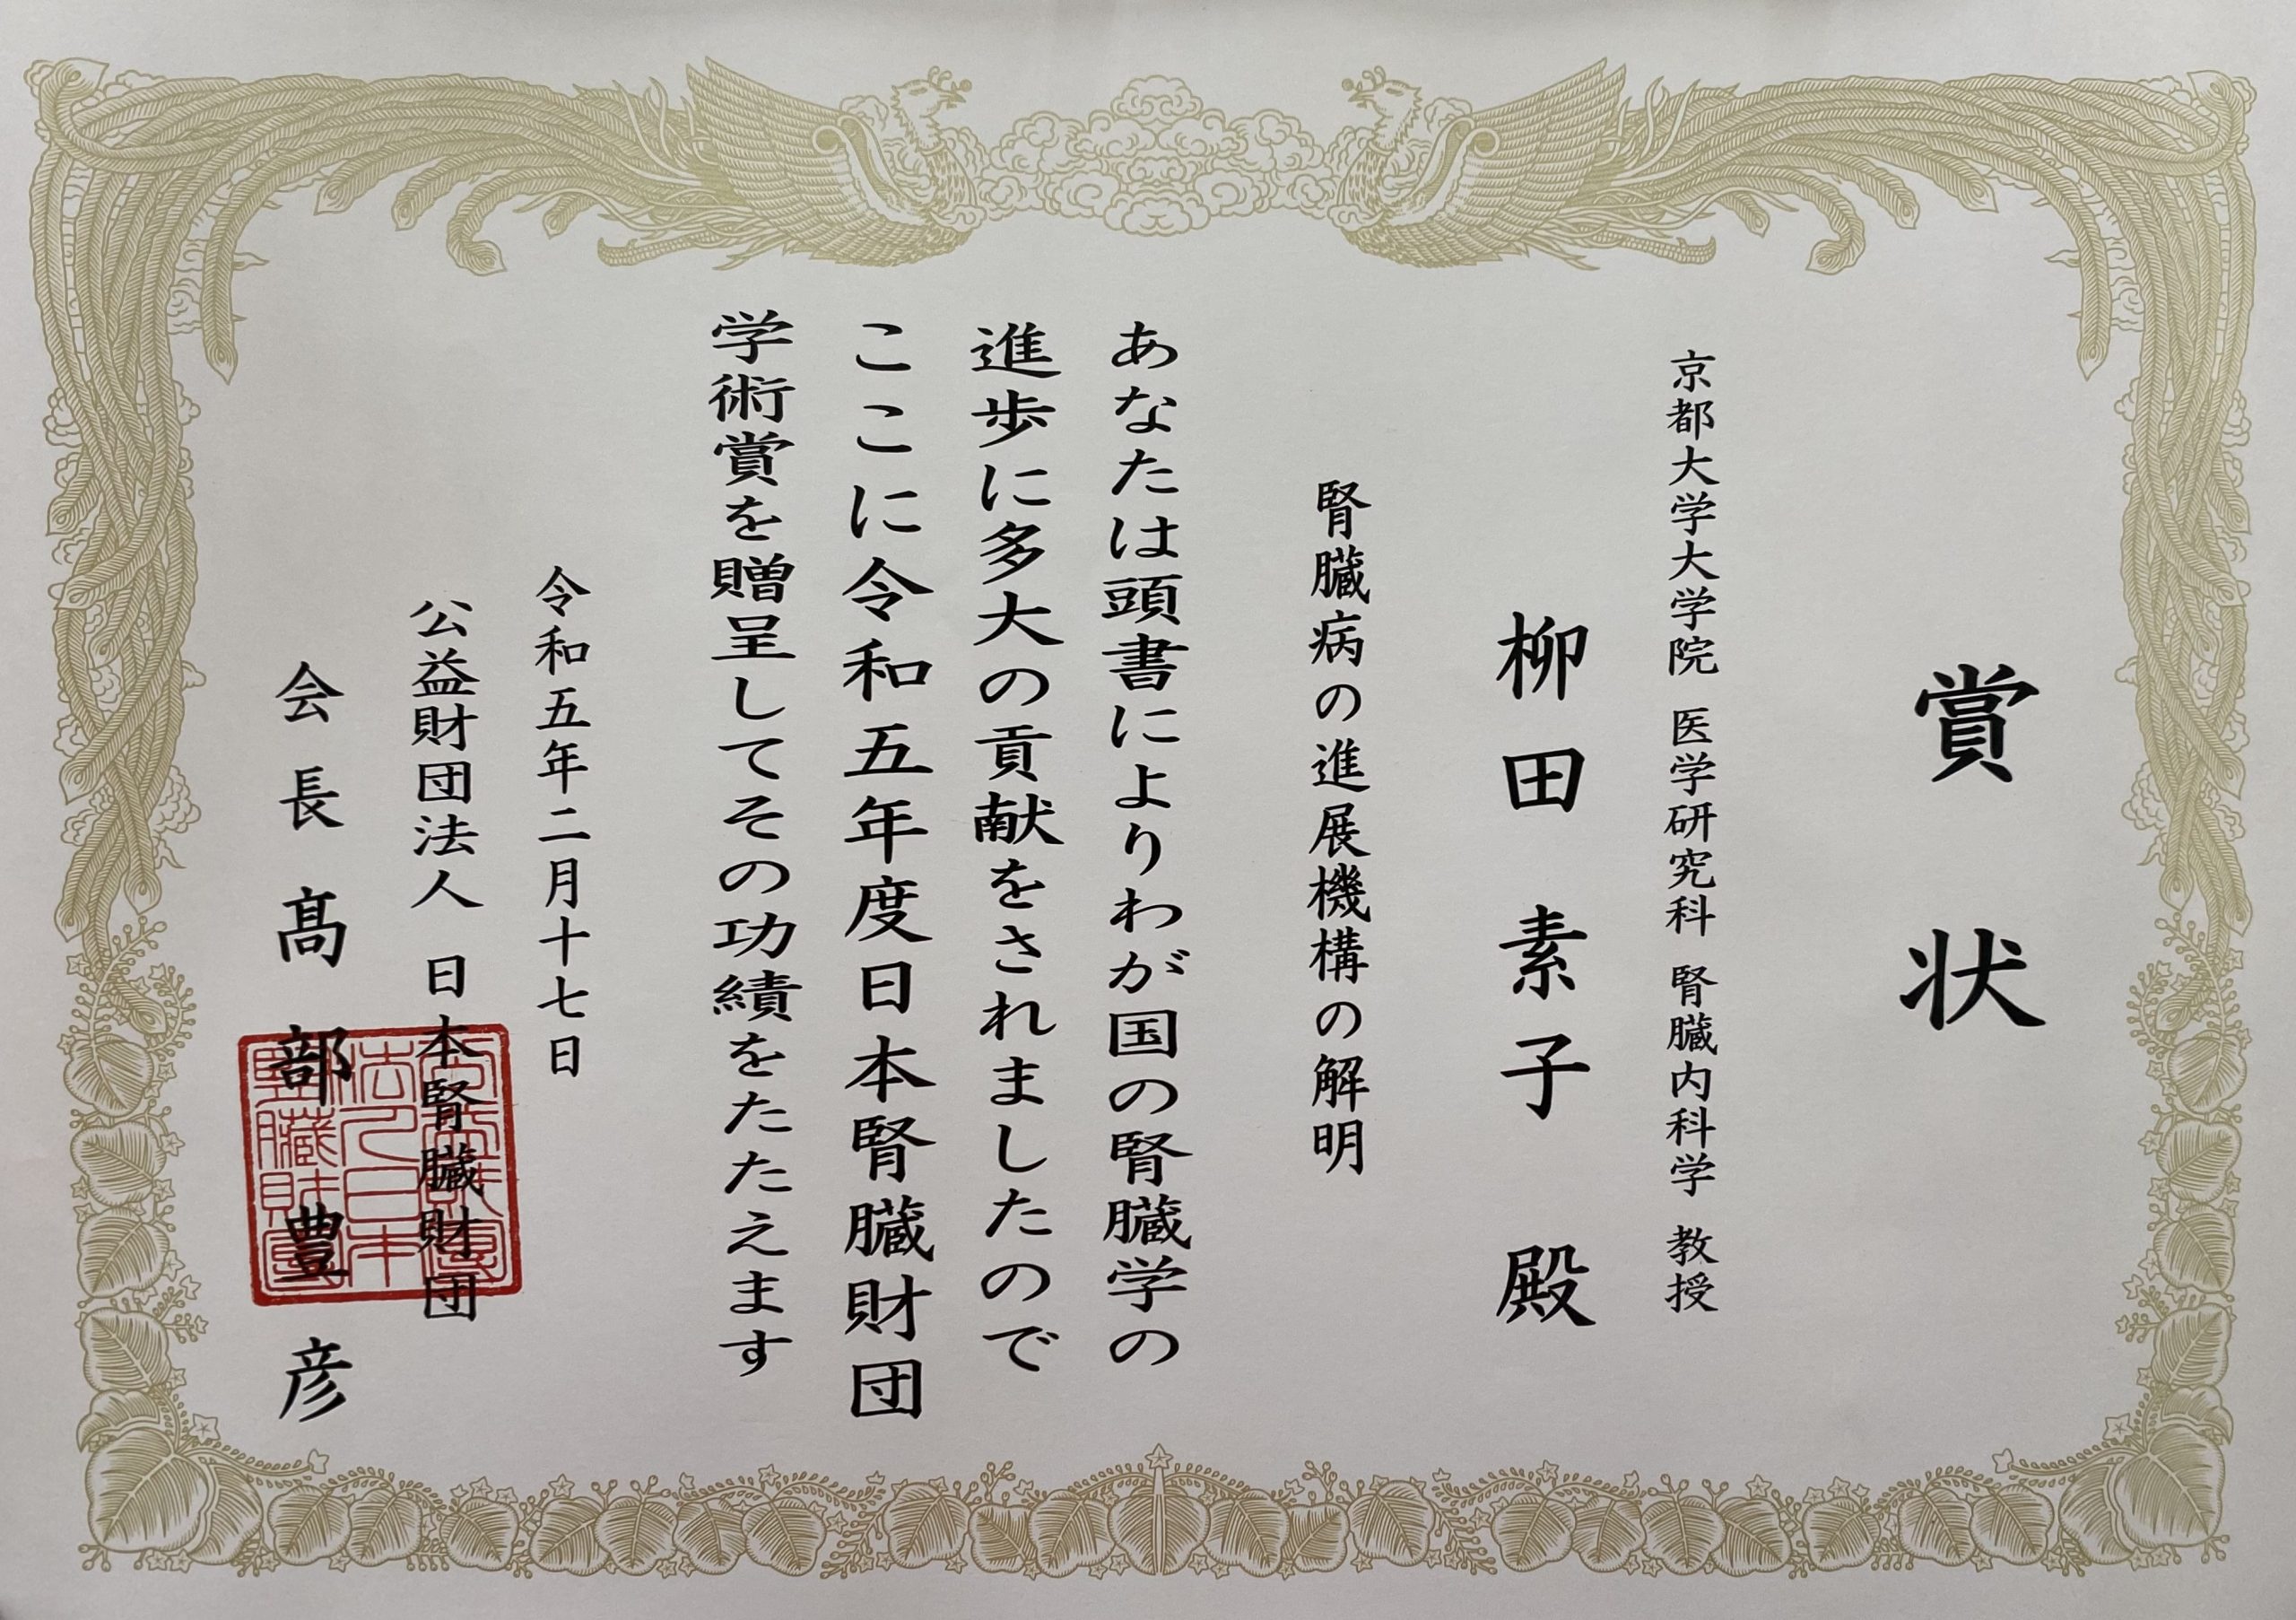 賞状
京都大学大学院 医学研究科 腎臓内科学 教授
柳田素子 殿
腎臓病の進展機構の解明
あなたは頭書によりわが国の腎臓学の
進歩に多大の貢献をされましたので
ここに令和五年度日本腎臓財団
学術賞を贈呈してその功績をたたえます
令和五年二月十七日
公益財団法人 日本腎臓財団
会長 髙部豊彦